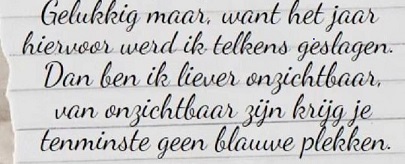 Gelukkig maar, want het jaar
hiervoor werd ik telkens geslagen.
Dan ben ik liever onzichtbaar,
van onzichtbaar zijn krijg je
tenminste geen blauwe plekken.